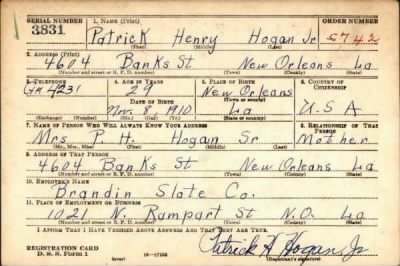 SERIAL NUMBER 1. NAME (Print) ORDER NUMBER
3831 Patrick Henry Hogan Jr 5742
(First) (Middle) (Last)
2. ADDRESS (Print)
4604 Banks St New Orleans La
(Number and street or R. F. D. number) (Town) (County) (State)
3. TELEPHONE 4. AGE IN YEARS 5. PLACE OF BIRTH 6. COUNTRY OF CITIZENSHIP
29 New Orleans
4231 DATE OF BIRTH (Town or county)
Nov. 8 1910 La U.S.A
(Exchange) (Number) (Mo.) (Day) (Yr.) (State or country)
7. NAME OF PERSON WHO WILL ALWAYS KNOW YOUR ADDRESS 8. RELATIONSHIP OF THAT PERSON
Mrs P. H. Hogan Sr Mother
(Mr., Mrs., Miss) (First) (Middle) (Last)
9. ADDRESS OF THAT PERSON
4604 Banks St New Orleans La
(Number and street or R. F. D. number) (Town) (County) (State)
10. EMPLOYER'S NAME
Brandin Slate Co.
11. PLACE OF EMPLOYMENT OR BUSINESS
1021 N. Rampart St N.O. La
(Number and street or R. F. D. number) (Town) (County) (State)
I AFFIRM THAT I HAVE VERIFIED ABOVE ANSWERS AND THAT THEY ARE TRUE.
REGISTRATION CARD
D. S. S. Form 1 (over) 16-17105 Patrick H Hogan Jr
(Registrant's signature)